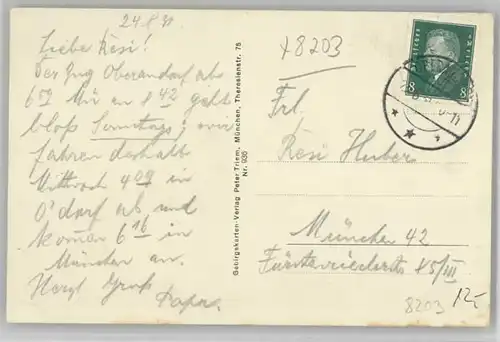 24.8.31
Liebe Resi!
Der Zug Oberaudorf ab
6 Uhr an 8 42 geht
bloß Sonntags; wir
fahren deshalb
Mittwoch 4 09 in
O'dorf ab und
kommen 6 16 in
München an.
Herzl Gruß
Papa.
Gebirgskarten-Verlag Peter Triem, München, Theresienstr. 75
Nr. 930
+8203
8
8
Frl.
Resi Huber
München 42
Fürstenriederstr. 85/III
8203
12,-